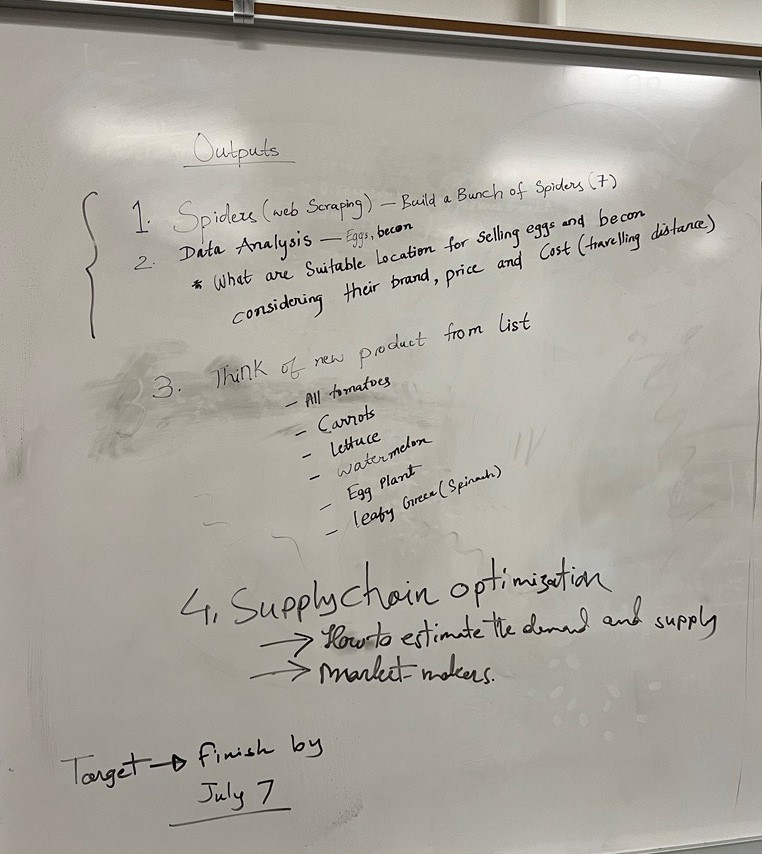 Outputs
1. Spiders (web Scraping) — Build a Bunch of Spiders (7)
2. Data Analysis — Eggs, becon
* What are Suitable Location for Selling eggs and becon
considering their brand, price and Cost (travelling distance)
3. Think of new product from list
- All tomatoes
- Carrots
- Lettuce
- watermelon
- Egg Plant
- leafy Green (Spinach)
4. Supplychain optimization
→ How to estimate the demand and supply
→ market-makers.
Target → finish by
July 7